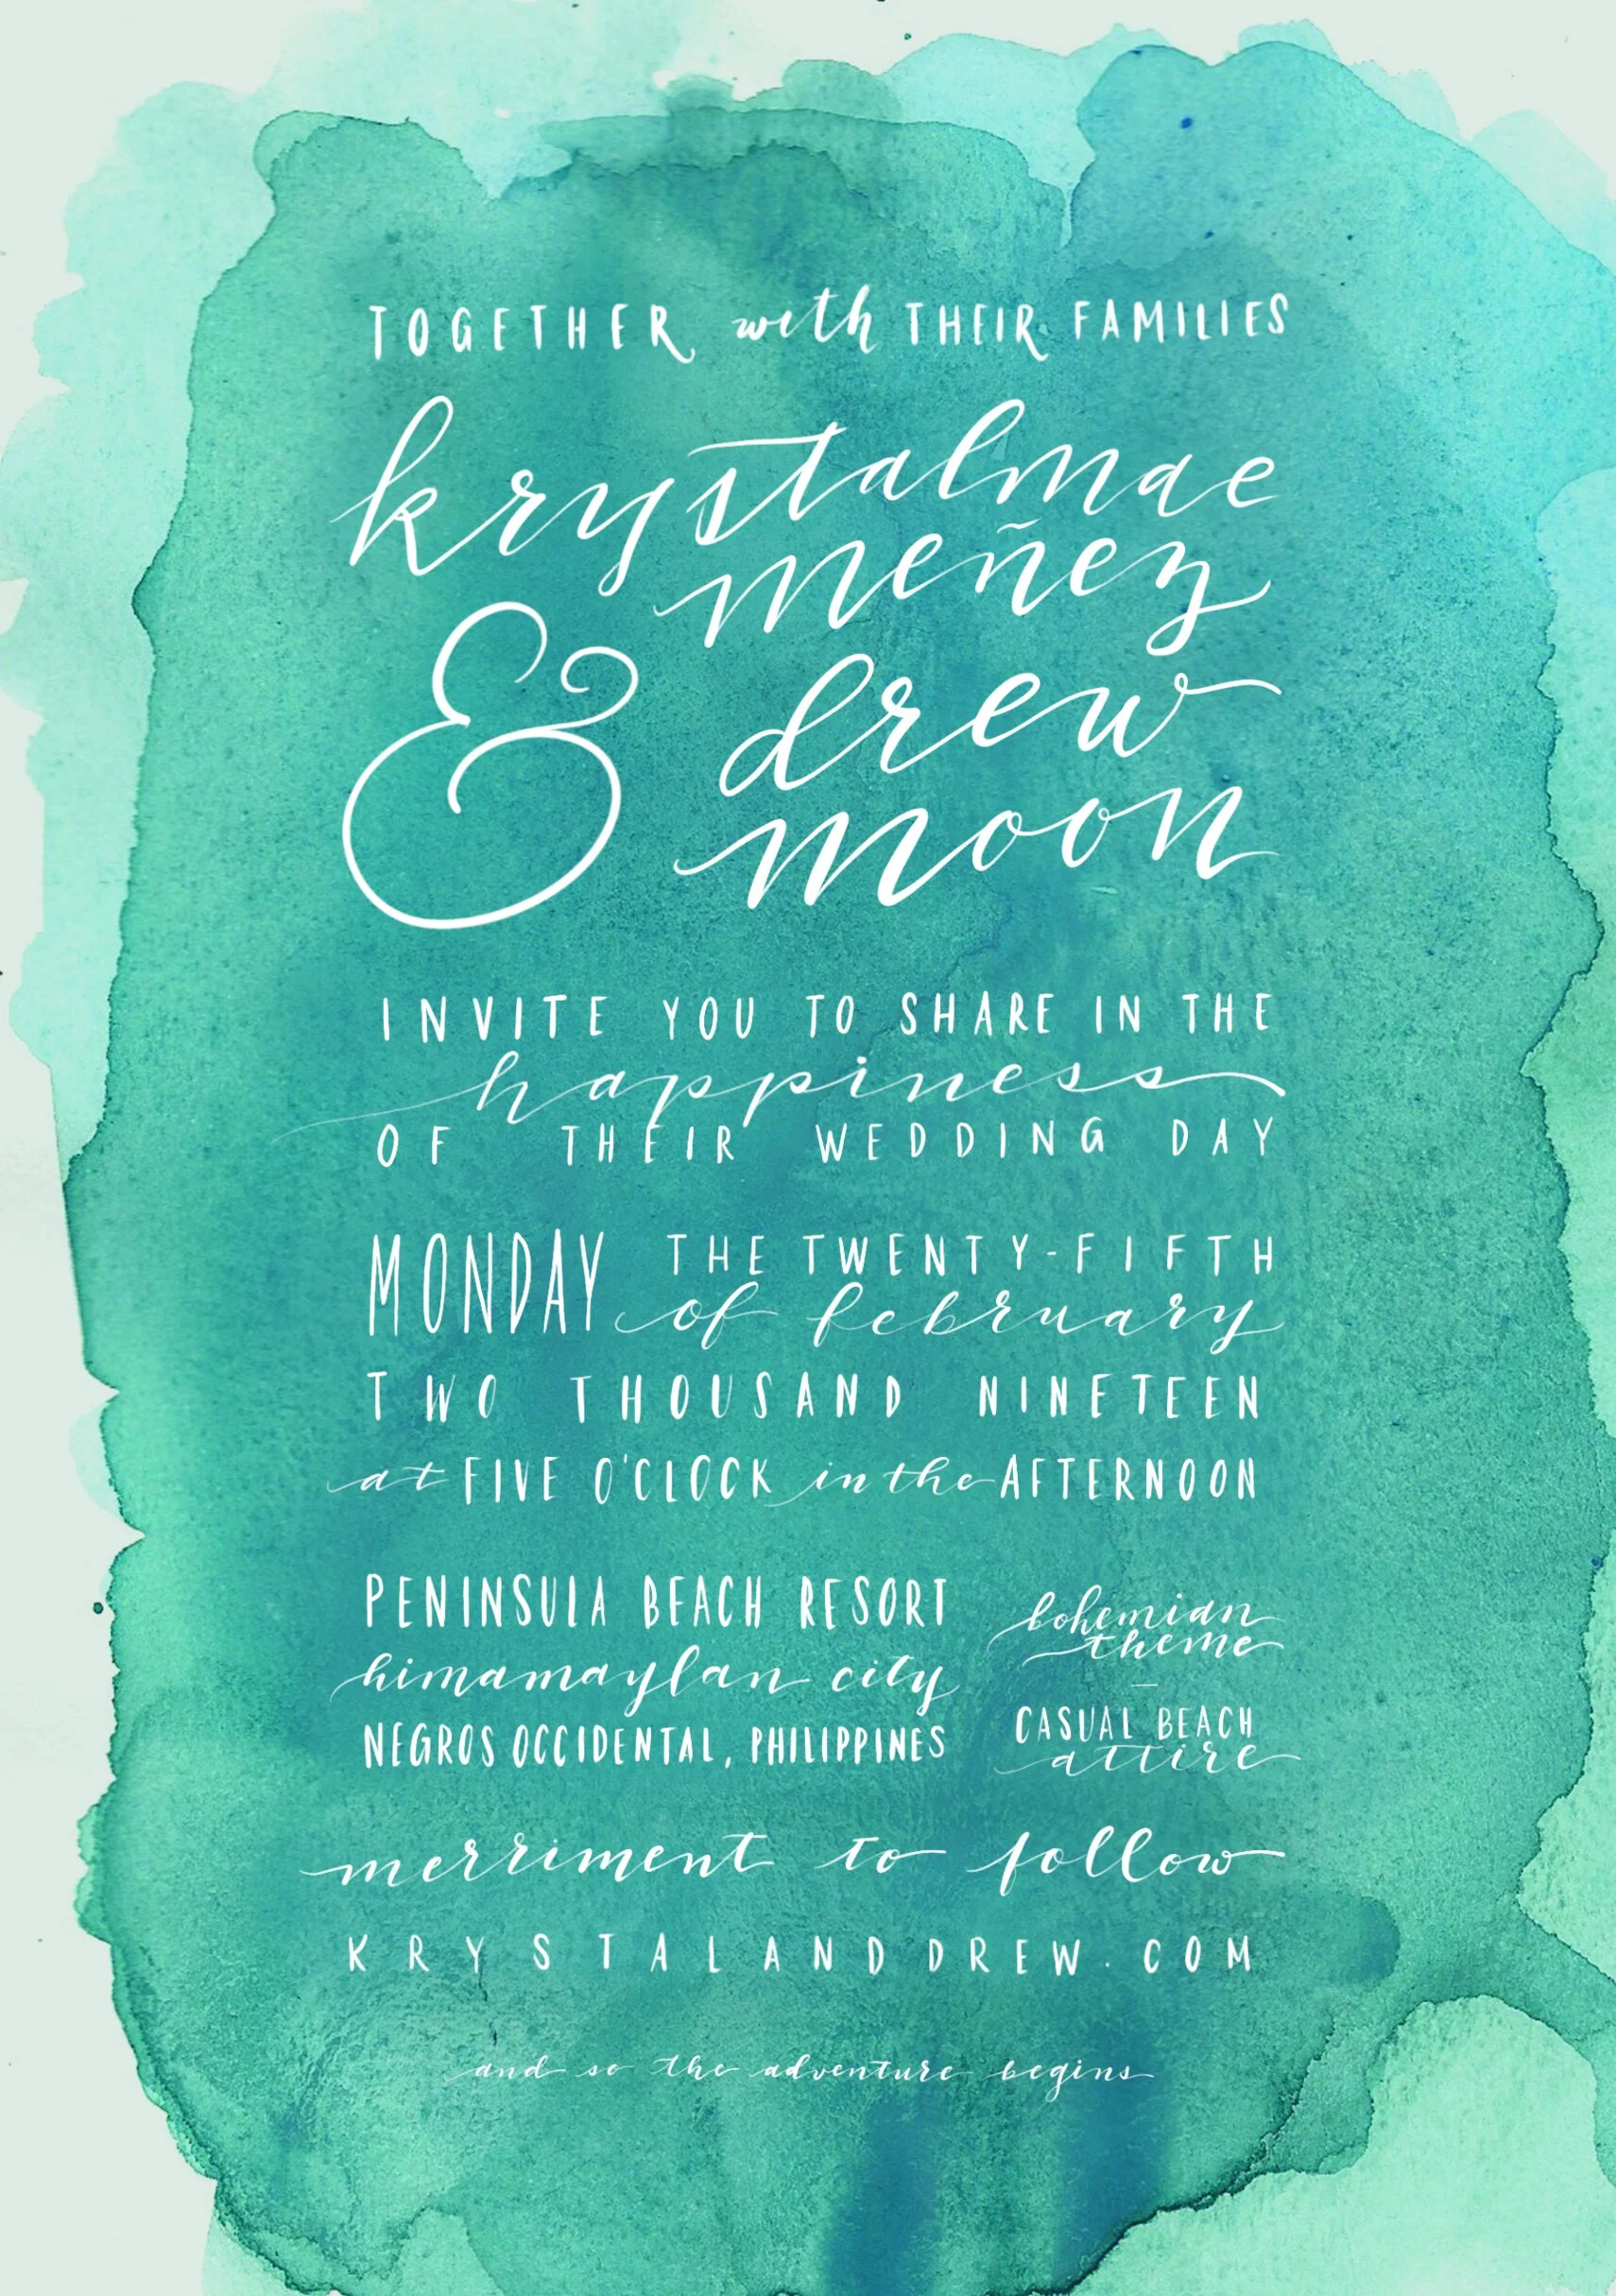 TOGETHER with THEIR FAMILIES
krystalmae
meñez
& drew
moon
INVITE YOU TO SHARE IN THE
happiness
OF THEIR WEDDING DAY
MONDAY THE TWENTY-FIFTH
of february
TWO THOUSAND NINETEEN
at FIVE O'CLOCK in the AFTERNOON
PENINSULA BEACH RESORT
himamaylan city
NEGROS OCCIDENTAL, PHILIPPINES
bohemian
theme
–
CASUAL BEACH
attire
merriment to follow
KRYSTALANDDREW.COM
and so the adventure begins